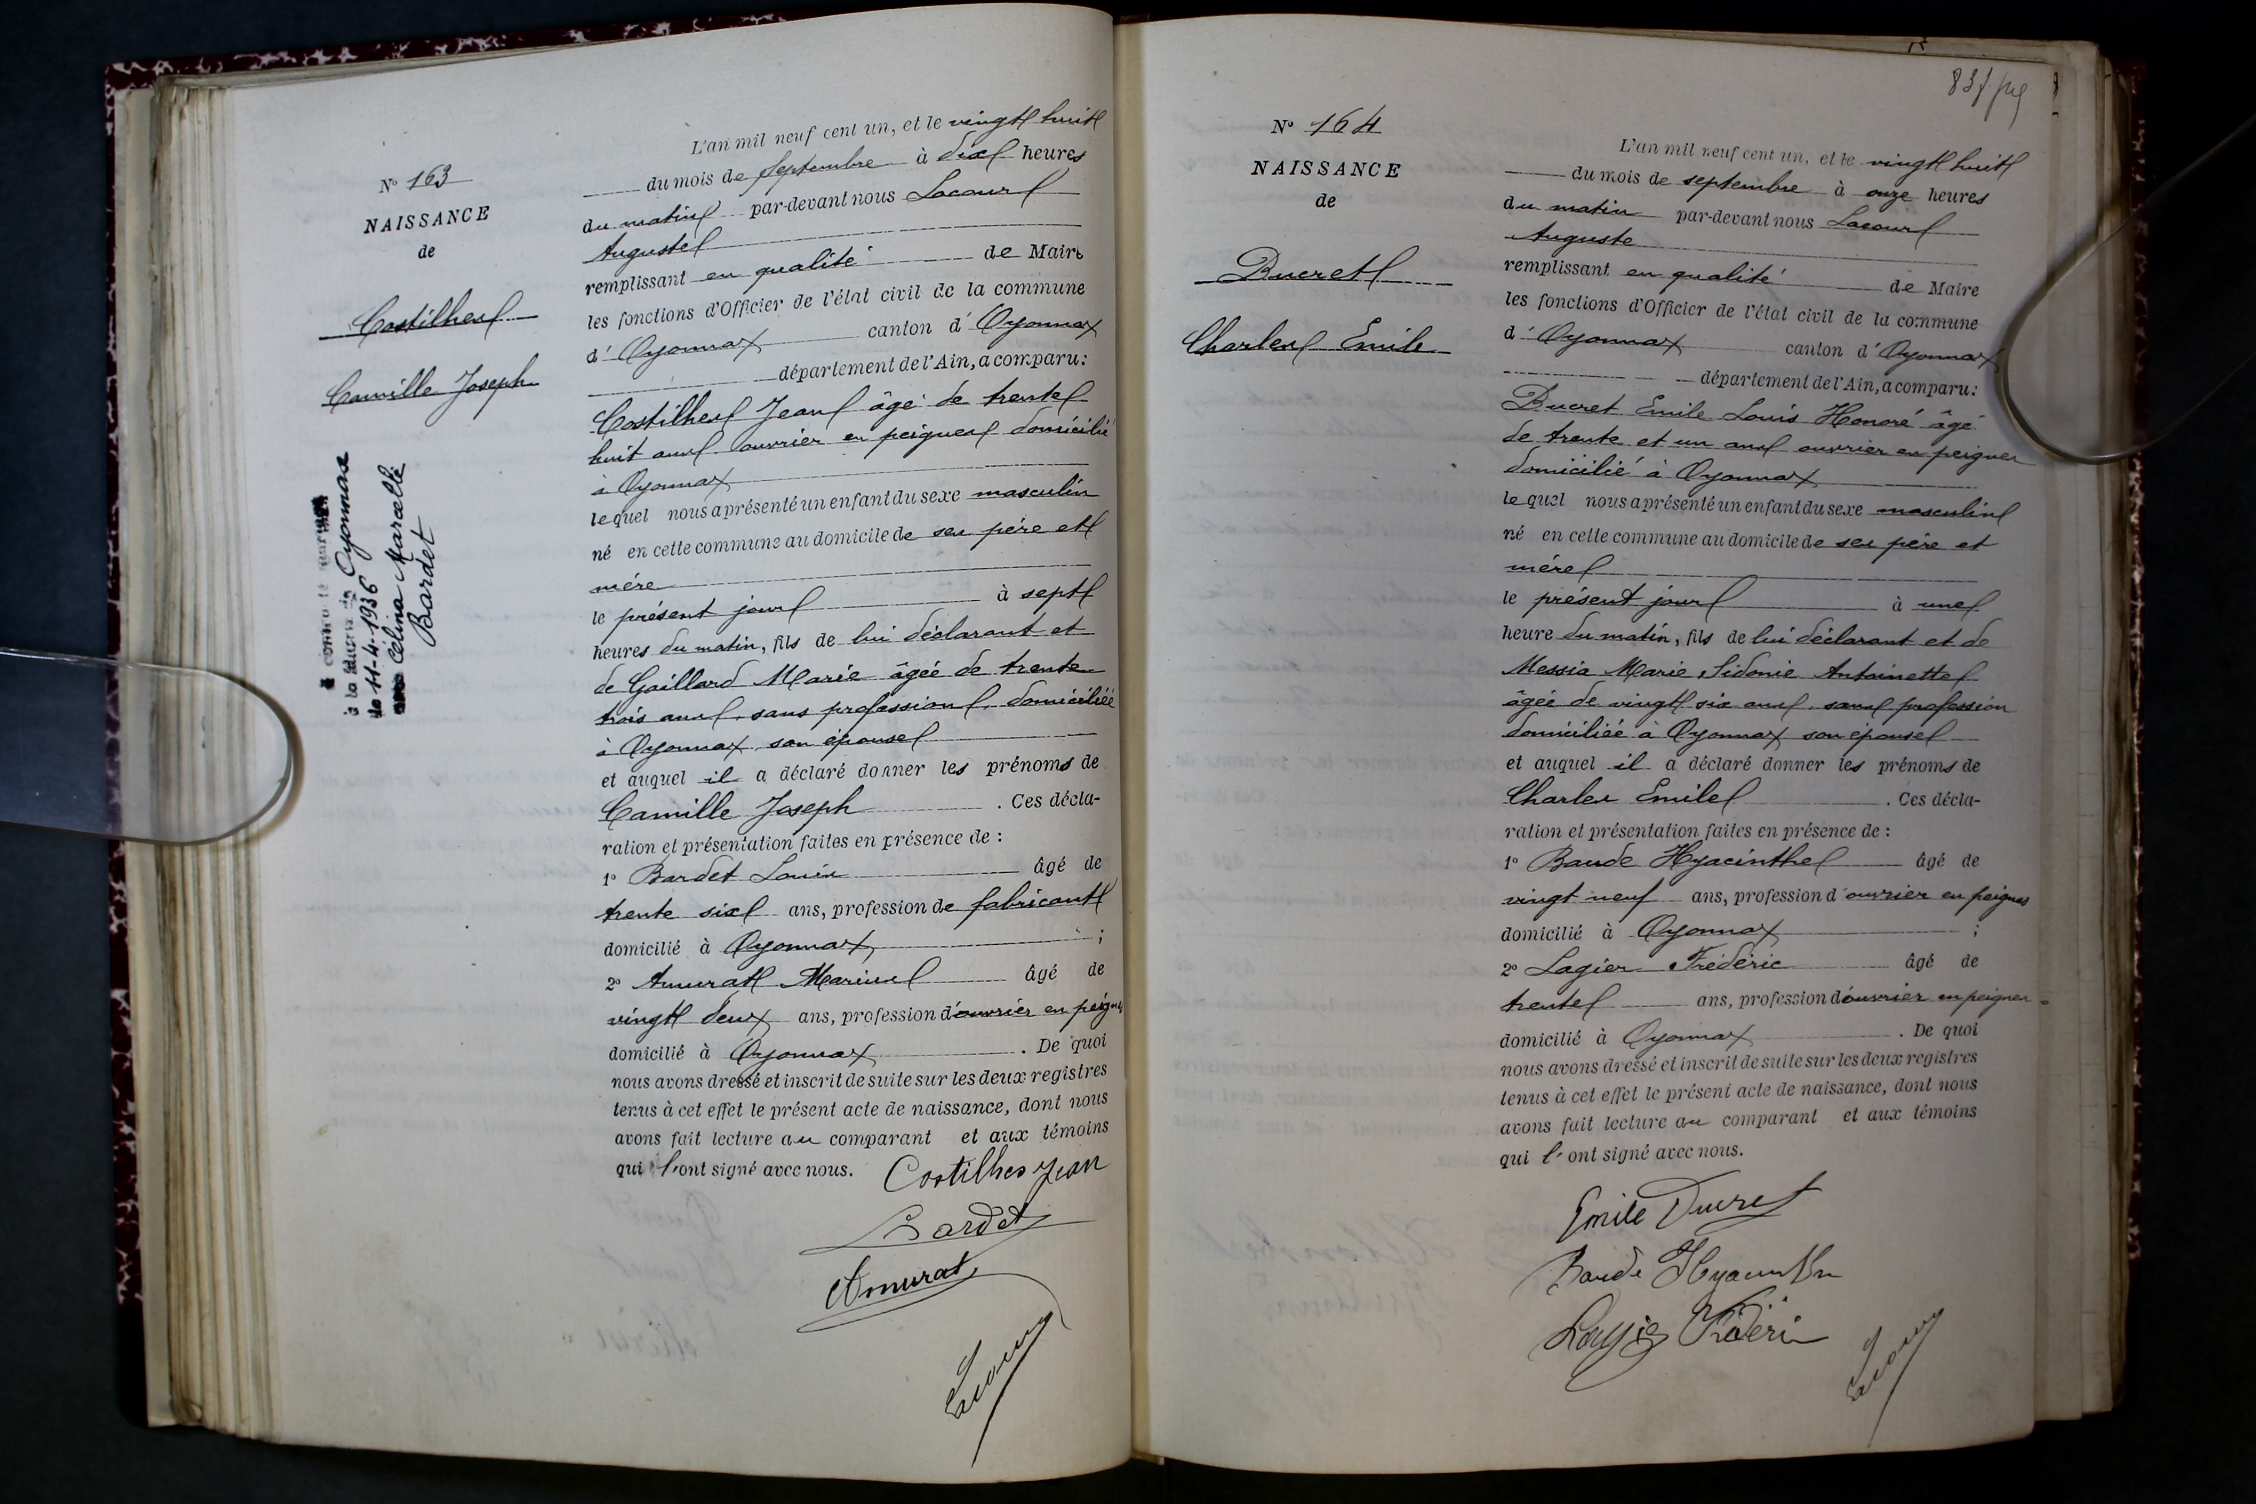 N° 163
NAISSANCE
de
Costilhes
Camille Joseph
à la Mairie de Oyonnax
le 11-4-1936
avec Célina Marcelle
Bardet
L'an mil neuf cent un, et le vingt huit
du mois de Septembre à dix heures
du matin par-devant nous Lacour
Auguste
remplissant en qualité de Maire
les fonctions d'Officier de l'état civil de la commune
d'Oyonnax canton d'Oyonnax
département de l'Ain, a comparu:
Costilhes Jean âgé de trente
huit ans ouvrier en peignes domicilié
à Oyonnax
lequel nous a présenté un enfant du sexe masculin
né en cette commune au domicile de ses père et
mère
le présent jour à sept
heures du matin, fils de lui déclarant et
de Gaillard Marie âgée de trente
trois ans, sans profession, domiciliée
à Oyonnax son épouse
et auquel il a déclaré donner les prénoms de
Camille Joseph. Ces décla-
ration et présentation faites en présence de :
1° Bardet Louis âgé de
trente six ans, profession de fabricant
domicilié à Oyonnax ;
2° Amurat Marius âgé de
vingt deux ans, profession d'ouvrier en peignes
domicilié à Oyonnax. De quoi
nous avons dressé et inscrit de suite sur les deux registres
tenus à cet effet le présent acte de naissance, dont nous
avons fait lecture au comparant et aux témoins
qui l'ont signé avec nous. Costilhes Jean
Bardet
Amurat
Lacour
83
N° 164
NAISSANCE
de
Ducret
Charles Emile
L'an mil neuf cent un, et le vingt huit
du mois de septembre à onze heures
du matin par-devant nous Lacour
Auguste
remplissant en qualité de Maire
les fonctions d'Officier de l'état civil de la commune
d'Oyonnax canton d'Oyonnax
département de l'Ain, a comparu:
Ducret Emile Louis Honoré âgé
de trente et un ans ouvrier en peignes
domicilié à Oyonnax
lequel nous a présenté un enfant du sexe masculin
né en cette commune au domicile de ses père et
mère
le présent jour à une
heure du matin, fils de lui déclarant et de
Messia Marie Sidonie Antoinette
âgée de vingt six ans, sans profession
domiciliée à Oyonnax son épouse
et auquel il a déclaré donner les prénoms de
Charles Emile. Ces décla-
ration et présentation faites en présence de :
1° Baude Hyacinthe âgé de
vingt neuf ans, profession d'ouvrier en peignes
domicilié à Oyonnax ;
2° Lagier Frédéric âgé de
trente ans, profession d'ouvrier en peignes
domicilié à Oyonnax. De quoi
nous avons dressé et inscrit de suite sur les deux registres
tenus à cet effet le présent acte de naissance, dont nous
avons fait lecture au comparant et aux témoins
qui l'ont signé avec nous.
Emile Ducret
Baude Hyacinthe
Lagier Frédéric
Lacour